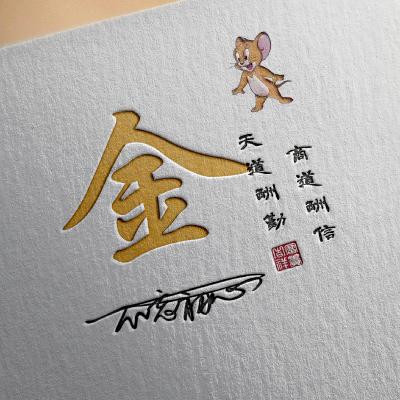 金
商道酬信
天道酬勤